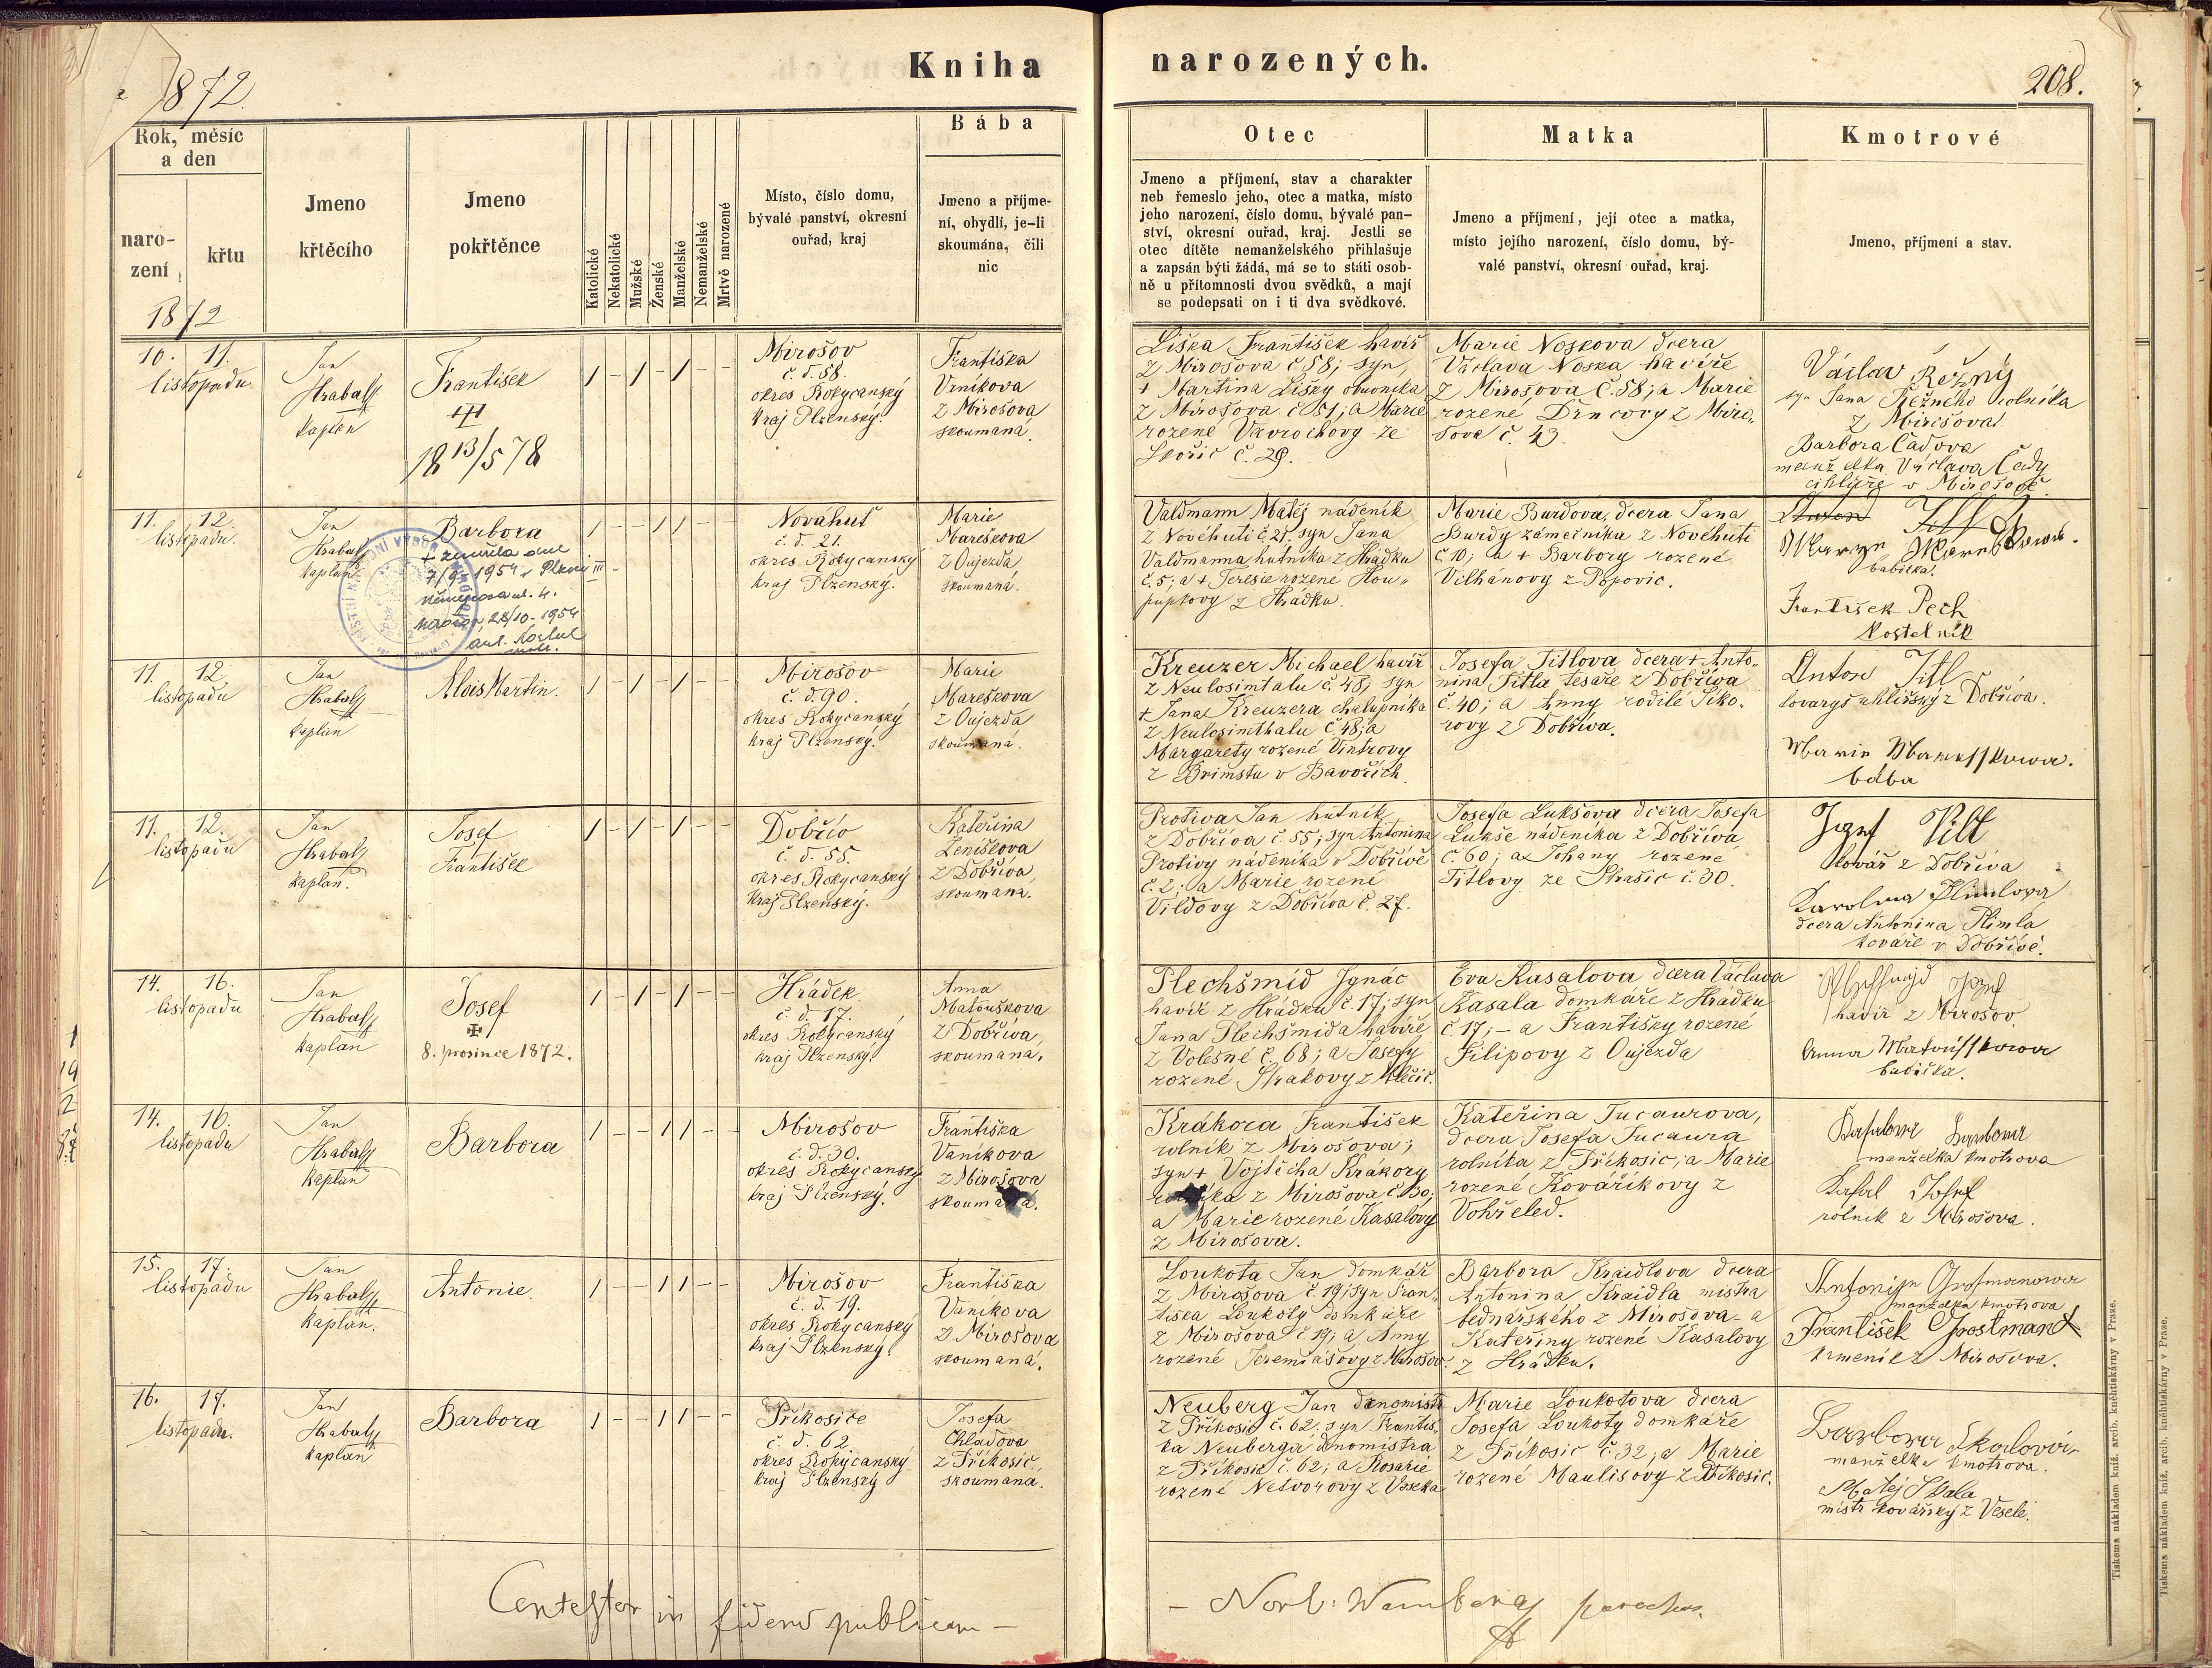 1872.
Kniha narozených.
208.
Rok, měsíc
a den
naro-
zení
křtu
1872
Jmeno
křtěcího
Jmeno
pokřtěnce
Katolické
Nekatolické
Mužské
Ženské
Manželské
Nemanželské
Mrtvě narozené
Místo, číslo domu,
bývalé panství, okresní
ouřad, kraj
Bába
Jmeno a příjme-
ní, obydlí, je-li
skoumána, čili
nic
Otec
Jmeno a příjmení, stav a charakter
neb řemeslo jeho, otec a matka, místo
jeho narození, číslo domu, bývalé pan-
ství, okresní ouřad, kraj. Jestli se
otec dítěte nemanželského přihlašuje
a zapsán býti žádá, má se to státi osob-
ně u přítomnosti dvou svědků, a mají
se podepsati on i ti dva svědkové.
Matka
Jmeno a příjmení, její otec a matka,
místo jejího narození, číslo domu, bý-
valé panství, okresní ouřad, kraj.
Kmotrové
Jmeno, příjmení a stav.
10. 11.
listopadu
Jan
Hrabal
kaplan
František
III
18 13/5 78
1 - 1 - 1 - -
Mirošov
č. d. 58.
okres Rokycanský
kraj Plzenský.
Františka
Vaníkova
z Mirošova
skoumaná.
Liška František havíř
z Mirošova č 58; syn
+ Martina Lišky obuvníka
z Mirošova č 51; a Marie
rozené Vavrochovy ze
Skořic č. 29.
Marie Noskova dcera
Václava Noska havíře
z Mirošova č. 58; a Marie
rozené Drncovy z Miro„
šova č. 43.
Václav Řežný
syn Jana Řežného rolníka
z Mirošova
Barbora Čadova
manželka Václava Čady
cihláře v Mirošově
11. 12.
listopadu.
Jan
Hrabal
kaplan
Barbora
+ zemřela dne
7/9 - 1954 v Plzni III -
Němejcova ul. 4.
Mirošov 22/10 - 1954
1 - - 1 1 - -
Novahuť
č. d. 21.
okres Rokycanský
kraj Plzenský.
Marie
Mareškova
z Oujezda
skoumaná.
Valdmann Matěj nádeník
z Novéhuti č 21, syn Jana
Valdmanna hutníka z Hrádku
č. 5; a + Teresie rozené Hou„
pupkovy z Hrádku.
Marie Burdova, dcera Jana
Burdy zámečníka z Novéhuti
č 10; a + Barbory rozené
Vilhánovy z Popovic.
Anton Titl
babička.
František Pech
kostelník
11. 12.
listopadu
Jan
Hrabal
kaplan
Alois Martin.
1 - 1 - 1 - -
Mirošov
č. d. 90.
okres Rokycanský
kraj Plzenský.
Marie
Mareškova
z Oujezda
skoumaná.
Kreuzer Michael havíř
z Neulosimtalu č. 48, syn
+ Jana Kreuzera chalupníka
z Neulosimthalu č. 48; a
Margarety rozené Vintrovy
z Brimstu v Bavořích.
Josefa Titlova dcera + Anto„
nina Titla tesaře z Dobříva
č. 40; a Anny rodilé Siko„
rovy z Dobříva.
Anton Titl
tovaryš uhlířský z Dobříva.
Marie Mareschkowa.
bába
11. 12.
listopadu
Jan
Hrabal
kaplan.
Josef
František
1 - 1 - 1 - -
Dobřív
č. d. 55.
okres Rokycanský
kraj Plzenský.
Kateřina
Ženíškova
z Dobříva
skoumana.
Protiva Jan hutník
z Dobříva č. 55; syn Antonina
Protivy nádeníka v Dobřívě
č. 2; a Marie rozené
Vildovy z Dobříva č. 27.
Josefa Lukšova dcera Josefa
Lukše nádeníka z Dobříva
č. 60; a Johany rozené
Titlovy ze Strašic č. 30.
Jozef Vilt
kovář z Dobříva
Karolina Plimlova
dcera Antonina Plimla
kováře v Dobřívě.
14. 16.
listopadu
Jan
Hrabal
kaplan
Josef
✠
8. prosince 1872.
1 - 1 - 1 - -
Hrádek
č. d. 17.
okres Rokycanský
kraj Plzenský.
Anna
Matouškova
z Dobříva,
skoumana.
Plechšmíd Ignác
havíř z Hrádku č. 17; syn
Jana Plechšmida havíře
z Volešné č. 68; a Josefy
rozené Strakovy z Mečic.
Eva Kasalova dcera Václava
Kasala domkáře z Hrádku
č. 17; - a Františky rozené
Filipovy z Oujezda
havíř z Mirošov.
Anna Matouschkowa
babička.
14. 16.
listopadu
Jan
Hrabal
kaplan
Barbora
1 - - 1 1 - -
Mirošov
č. d. 30.
okres Rokycanský
kraj Plzenský.
Františka
Vaníkova
z Mirošova
skoumaná.
Krákora František
rolník z Mirošova;
syn + Vojtěcha Krákory
rolníka z Mirošova č. 30;
a Marie rozené Kasalovy
z Mirošova.
Kateřina Tucaurova,
dcera Josefa Tucaura
rolníka z Příkosic; a Marie
rozené Kovaříkovy z
Vohřeled.
Kasalova Barbora
manželka kmotrova
Kasal Josef
rolník z Mirošova.
15. 17.
listopadu
Jan
Hrabal
kaplan.
Antonie.
1 - - 1 1 - -
Mirošov
č. d. 19.
okres Rokycanský
kraj Plzenský.
Františka
Vaníkova
z Mirošova
skoumaná.
Loukota Jan domkář
z Mirošova č. 19; syn Fran„
tiška Loukoty domkáře
z Mirošova č. 19; a Anny
rozené Jeremiášovy z Mirošov.
Barbora Kraidlova dcera
Antonina Kraidla mistra
bednářského z Mirošova - a
Kateřiny rozené Kasalovy
z Hrádku.
manželka kmotrova
František Grostmann
kameník z Mirošova.
16. 17.
listopadu.
Jan
Hrabal
kaplan
Barbora
1 - - 1 1 - -
Příkosice
č. d. 62
okres Rokycanský
kraj Plzenský
Josefa
Chladova
z Příkosic.
skoumana.
Neuberg Jan dnomistr
z Příkosic č. 62; syn Františ„
ka Neuberga dnomistra
z Příkosic č. 62; a Rosarie
rozené Netvorovy z Voseka
Marie Loukotova dcera
Josefa Loukoty domkáře
z Příkosic č. 32; a Marie
rozené Maulisovy z Příkosic.
Barbora Skalová
manželka kmotrova.
Matěj Skala
mistr kovářský z Veselí.
Contestor in fidem publicam -
- Norb: Wamberag parochus.
Tiskem a nákladem kníž. arcib. kněhtiskárny v Praze.
Tiskem a nákladem kníž. arcib. kněhtiskárny v Praze.